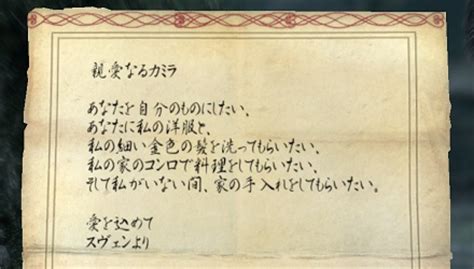 親愛なるカミラ
あなたを自分のものにしたい、
あなたに私の洋服と、
私の細い金色の髪を洗ってもらいたい、
私の家のコンロで料理をしてもらいたい、
そして私がいない間、家の手入れをしてもらいたい。
愛を込めて
スヴェンより